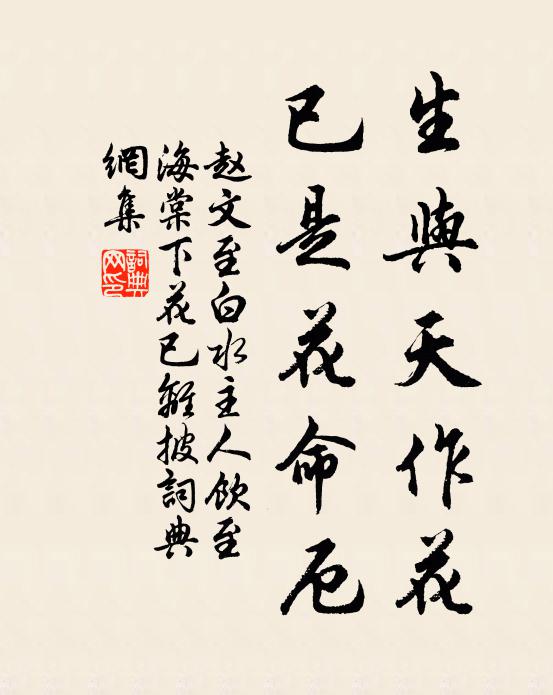 生與天作花
已是花命厄
赵文至白水主人飲至
海棠下花已離披詞典
網集
詞典网印